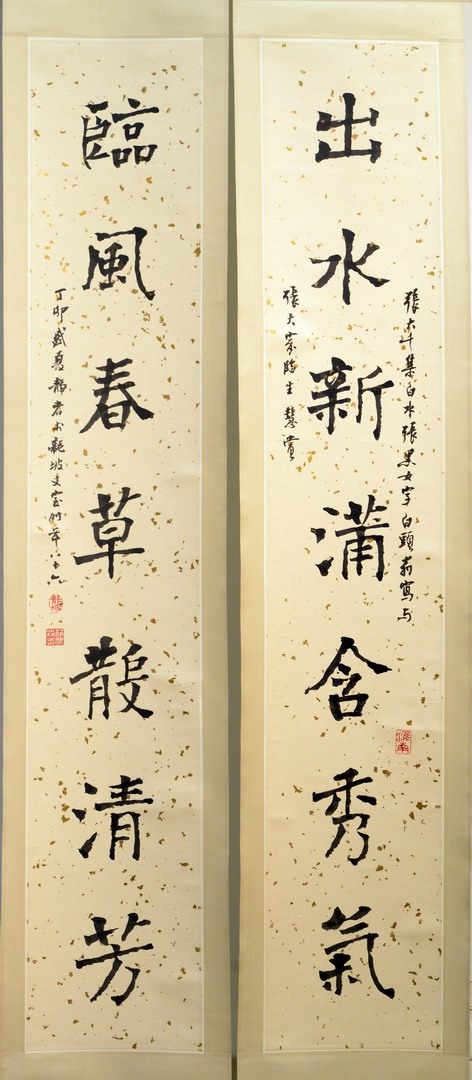 張大千集白水張黑女字白頭寫与
出水新蒲含秀氣
張大臨生慧賞
臨風春草散清芳
丁卯盛夏靜者於龍坡丈室時年八十六